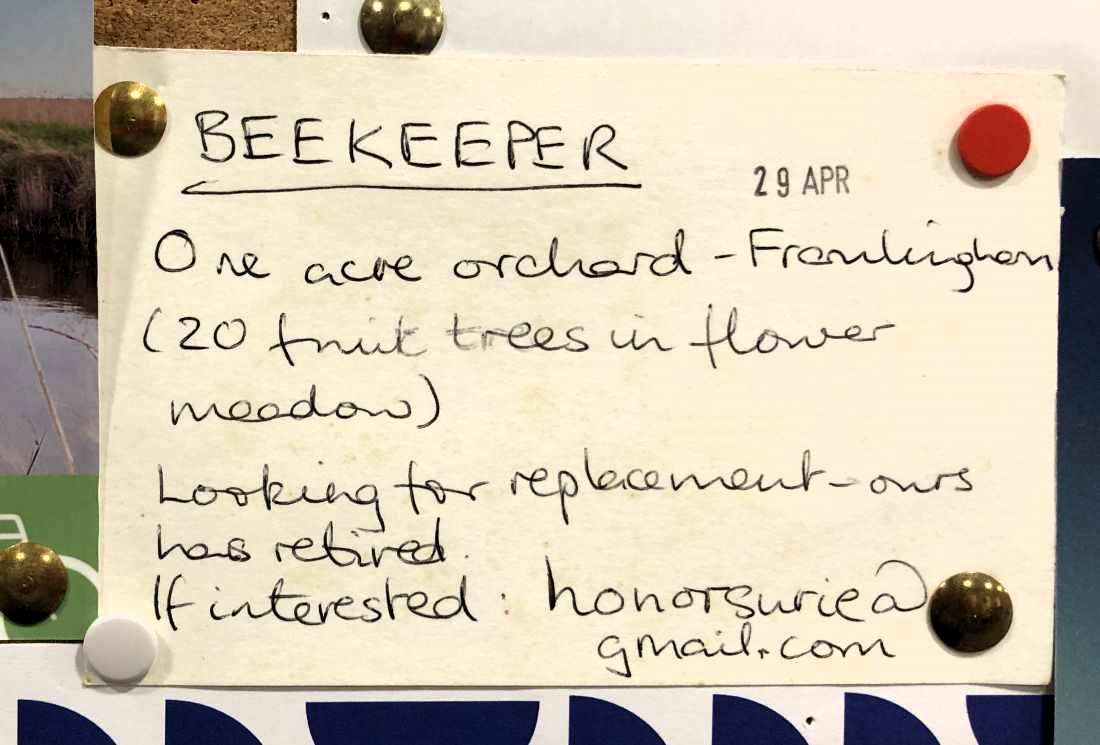 BEEKEEPER
29 APR
One acre orchard - Framlingham
(20 fruit trees in flower
meadow)
Looking for replacement - ours
has retired.
If interested : honorsurie@
gmail.com